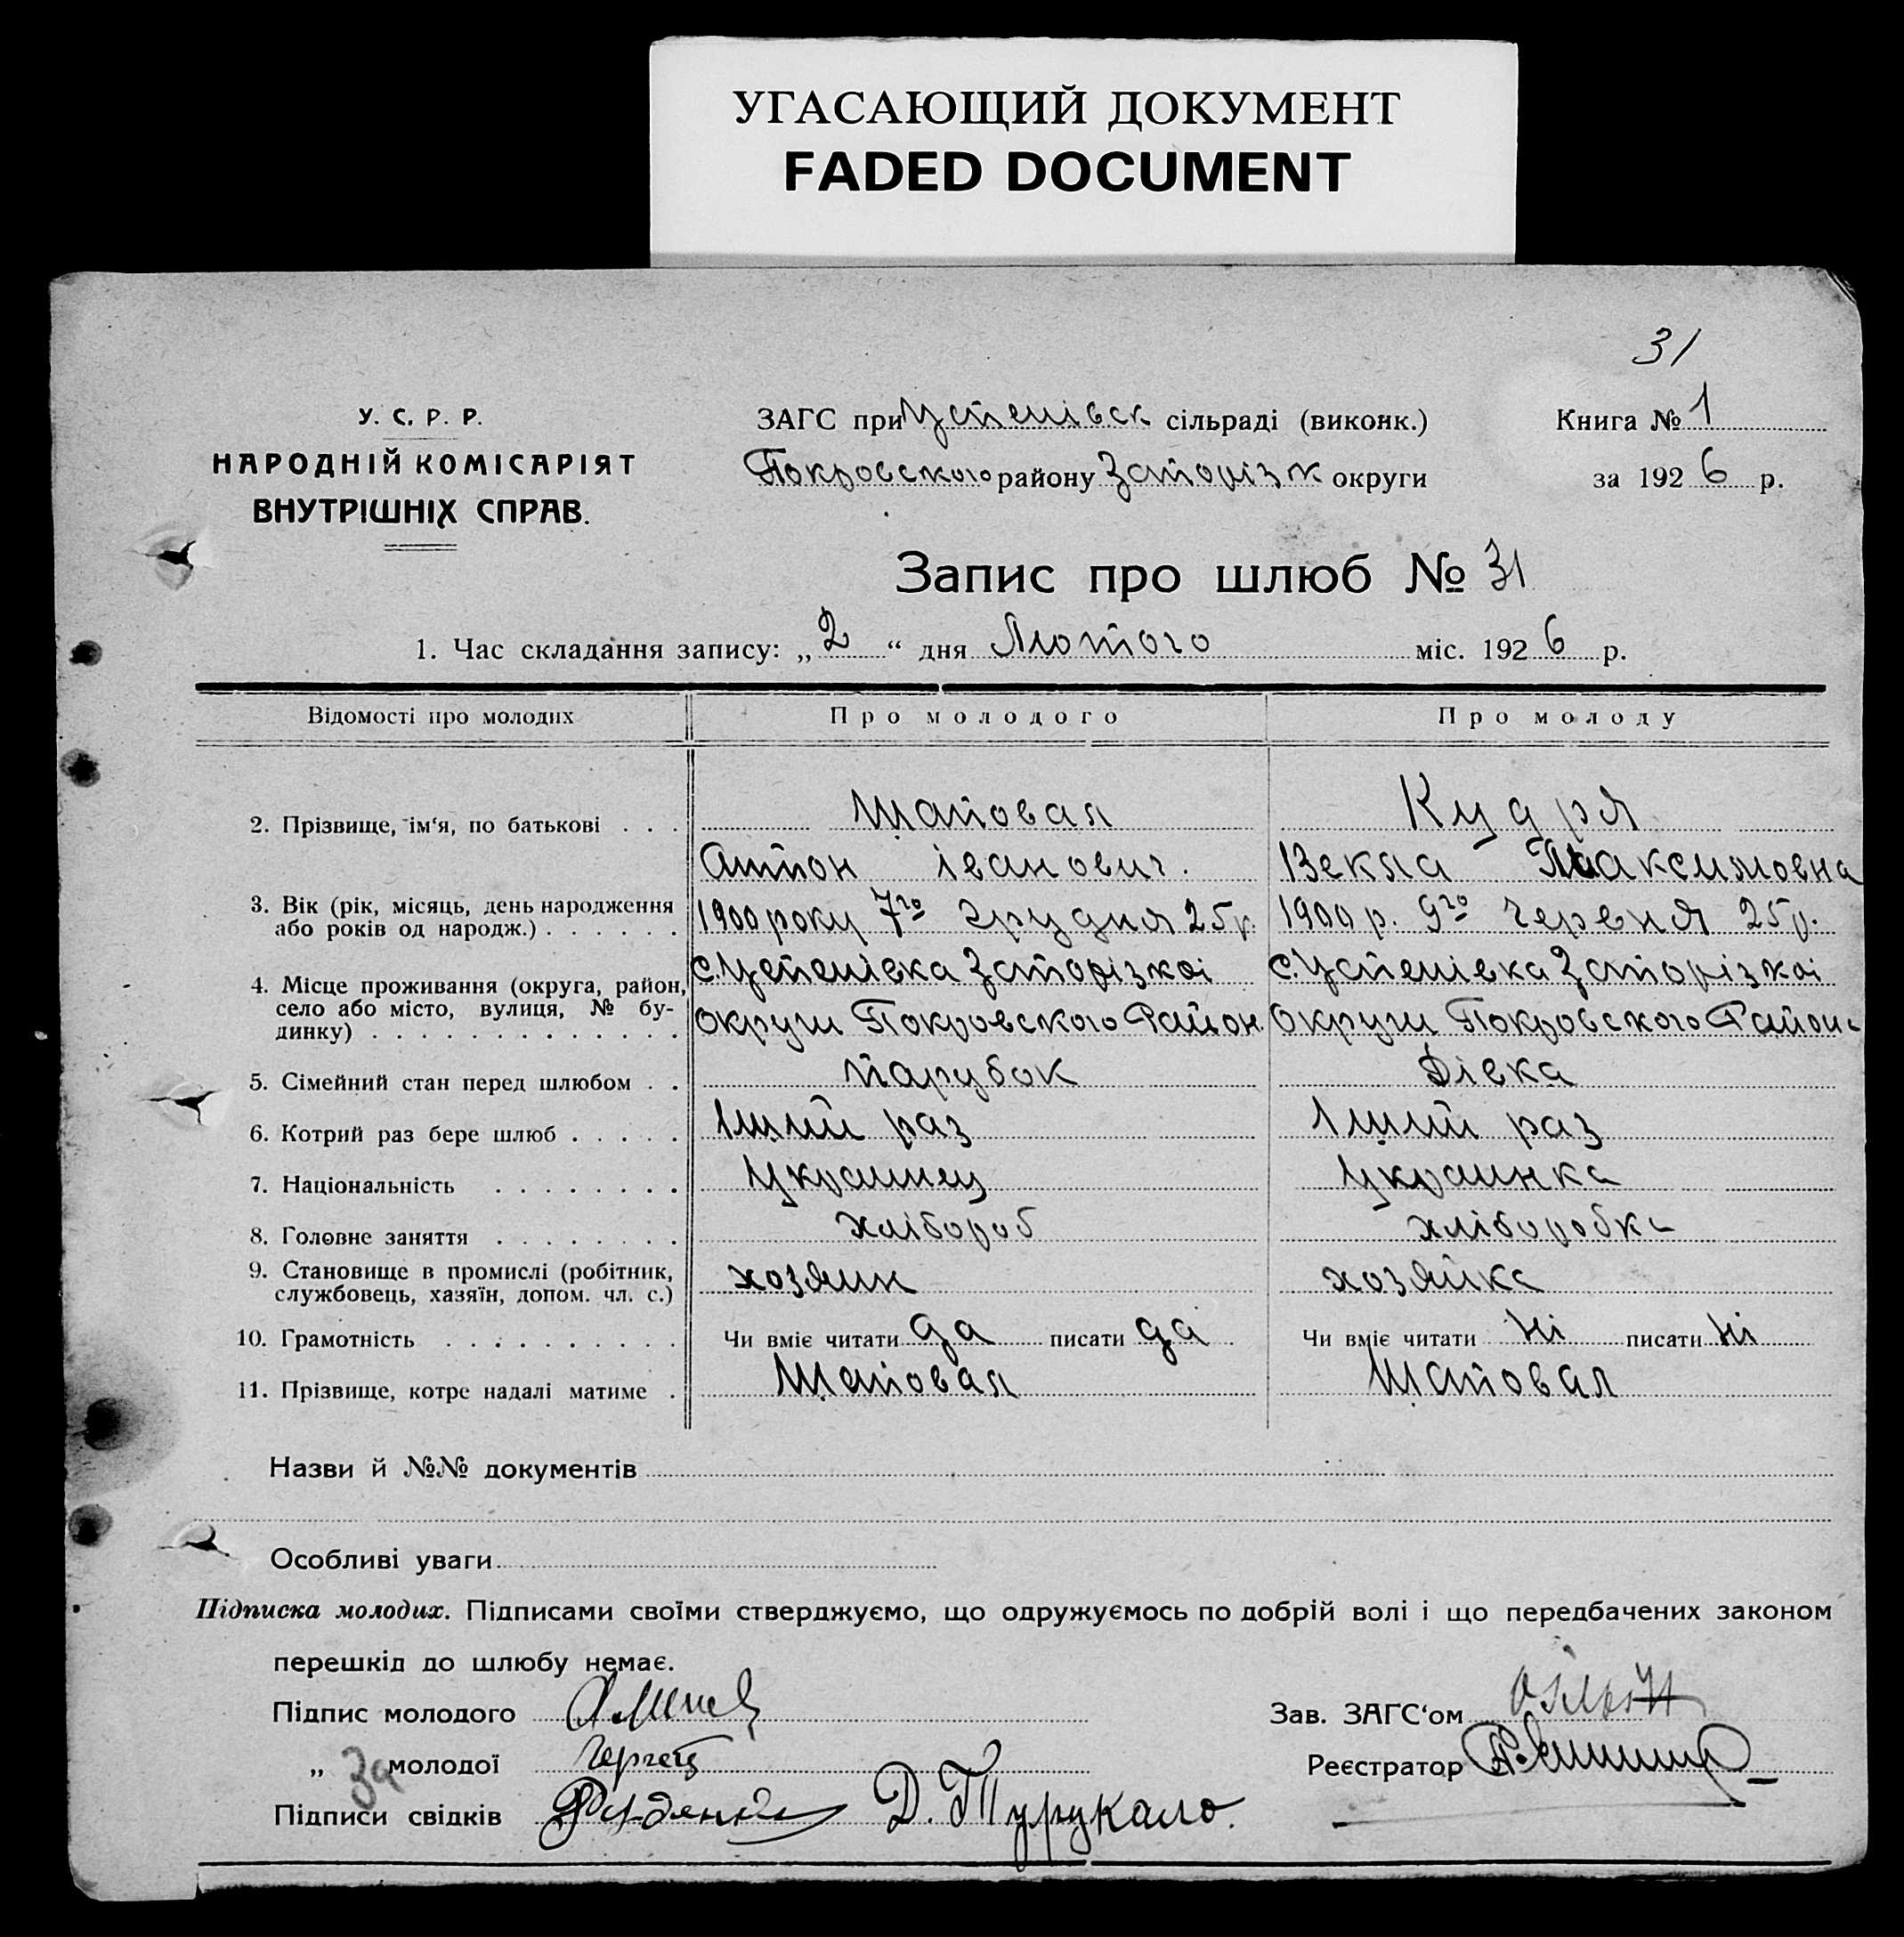 УГАСАЮЩИЙ ДОКУМЕНТ
FADED DOCUMENT
31
У. С. Р. Р.
НАРОДНІЙ КОМІСАРІЯТ
ВНУТРІШНІХ СПРАВ.
ЗАГС при Успенівск сільраді (виконк.)
Покровського району Запорізк округи
Книга № 1
за 1926 р.
Запис про шлюб № 31
1. Час складання запису: „2“ дня Лютого міс. 1926 р.
Відомості про молодих Про молодого Про молоду
2. Прізвище, ім‘я, по батькові . . . Шаповал Кудря
Антон Іванович. Векла Максимовна
3. Вік (рік, місяць, день народження або років од народж.) . . . . . . 1900 року 7го грудня 25 р. 1900 р. 9го червня 25 р.
4. Місце проживання (округа, район, село або місто, вулиця, № будинку) . . . . . . . . . . . . . с. Успенівка Запорізкоі с. Успенівка Запорізкоі
округи Покровского Район округи Покровского Района
5. Сімейний стан перед шлюбом . . парубок Дівка
6. Котрий раз бере шлюб . . . . . 1ший раз 1ший раз
7. Національність . . . . . . . . Украинец Украинка
8. Головне заняття . . . . . . . . хлібороб хліборобка
9. Становище в промислі (робітник, службовець, хазяїн, допом. чл. с.) хозяин хозяйка
10. Грамотність . . . . . . . . . . Чи вміє читати да писати да Чи вміє читати ні писати ні
11. Прізвище, котре надалі матиме . Шаповал Шаповал
Назви й №№ документів
Особливі уваги
Підписка молодих. Підписами своїми стверджуємо, що одружуємось по добрій волі і що передбачених законом
перешкід до шлюбу немає.
Підпис молодого
Зав. ЗАГС‘ом
„ За молодої
Реєстратор
Підписи свідків Д. Турукало.